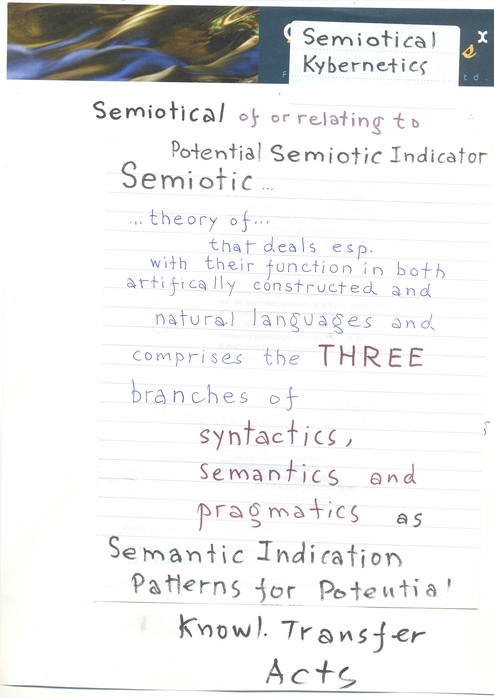 Semiotical
Kybernetics
x
s
td.
Semiotical of or relating to
Potential Semiotic Indicator
Semiotic ...
... theory of ...
that deals esp.
with their function in both
artifically constructed and
natural languages and
comprises the THREE
branches of
syntactics,
semantics and
pragmatics as
Semantic Indication
Patterns for Potential
Knowl. Transfer
Acts